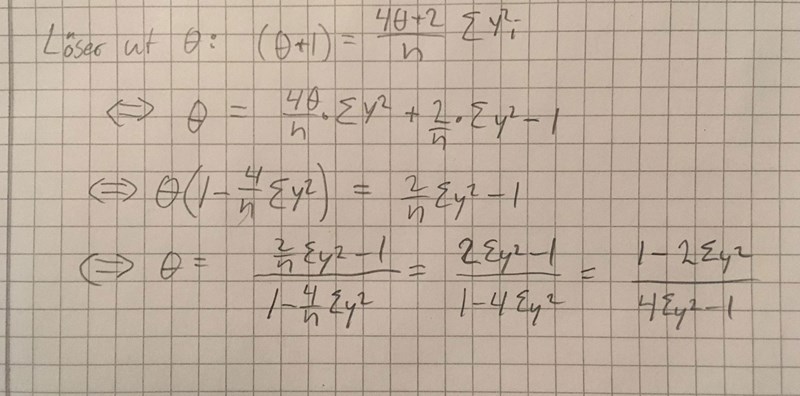 Löser ut θ: (θ+1) = \frac{4θ+2}{n} Σy²ᵢ
⇔ θ = \frac{4θ}{n} · Σy² + \frac{2}{n} · Σy² − 1
⇔ θ(1 − \frac{4}{n} Σy²) = \frac{2}{n} Σy² − 1
⇔ θ = \frac{\frac{2}{n} Σy² − 1}{1 − \frac{4}{n} Σy²} = \frac{2Σy² − 1}{1 − 4Σy²} = \frac{1 − 2Σy²}{4Σy² − 1}